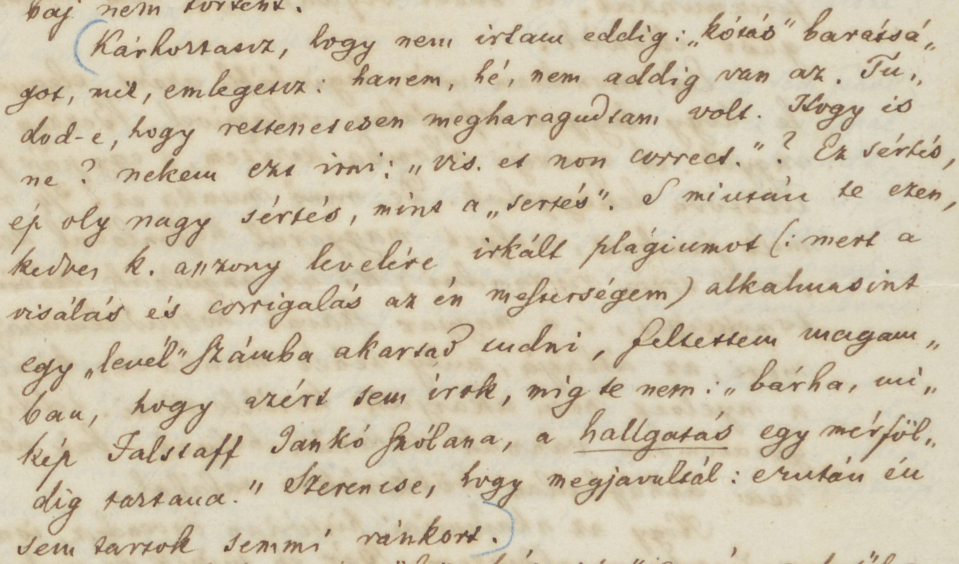 baj nem történt.
Kárhoztatsz, hogy nem írtam eddig: „kótás” barátsá„
got, mit, emlegetsz: hanem, hé, nem addig van az. Tu„
dod-e, hogy rettenetesen megharagudtam volt. Hogy is
ne? nekem ezt irni: „vis. et non correct.”? Ez sértés,
ép oly nagy sértés, mint a „sertés”. S miután te ezen,
kedves k. asszony levelére irkált plágiumot (: mert a
visálás és corrigalás az én mesterségem) alkalmasint
egy „levél” számba akartad tudni, feltettem magam„
ban, hogy azért sem irok, mig te nem: „bárha, mi„
kép Falstaff Jankó szólana, a hallgatás egy mérföl„
dig tartana.” Szerencse, hogy megjavultál: ezután én
sem tartok semmi ránkort.